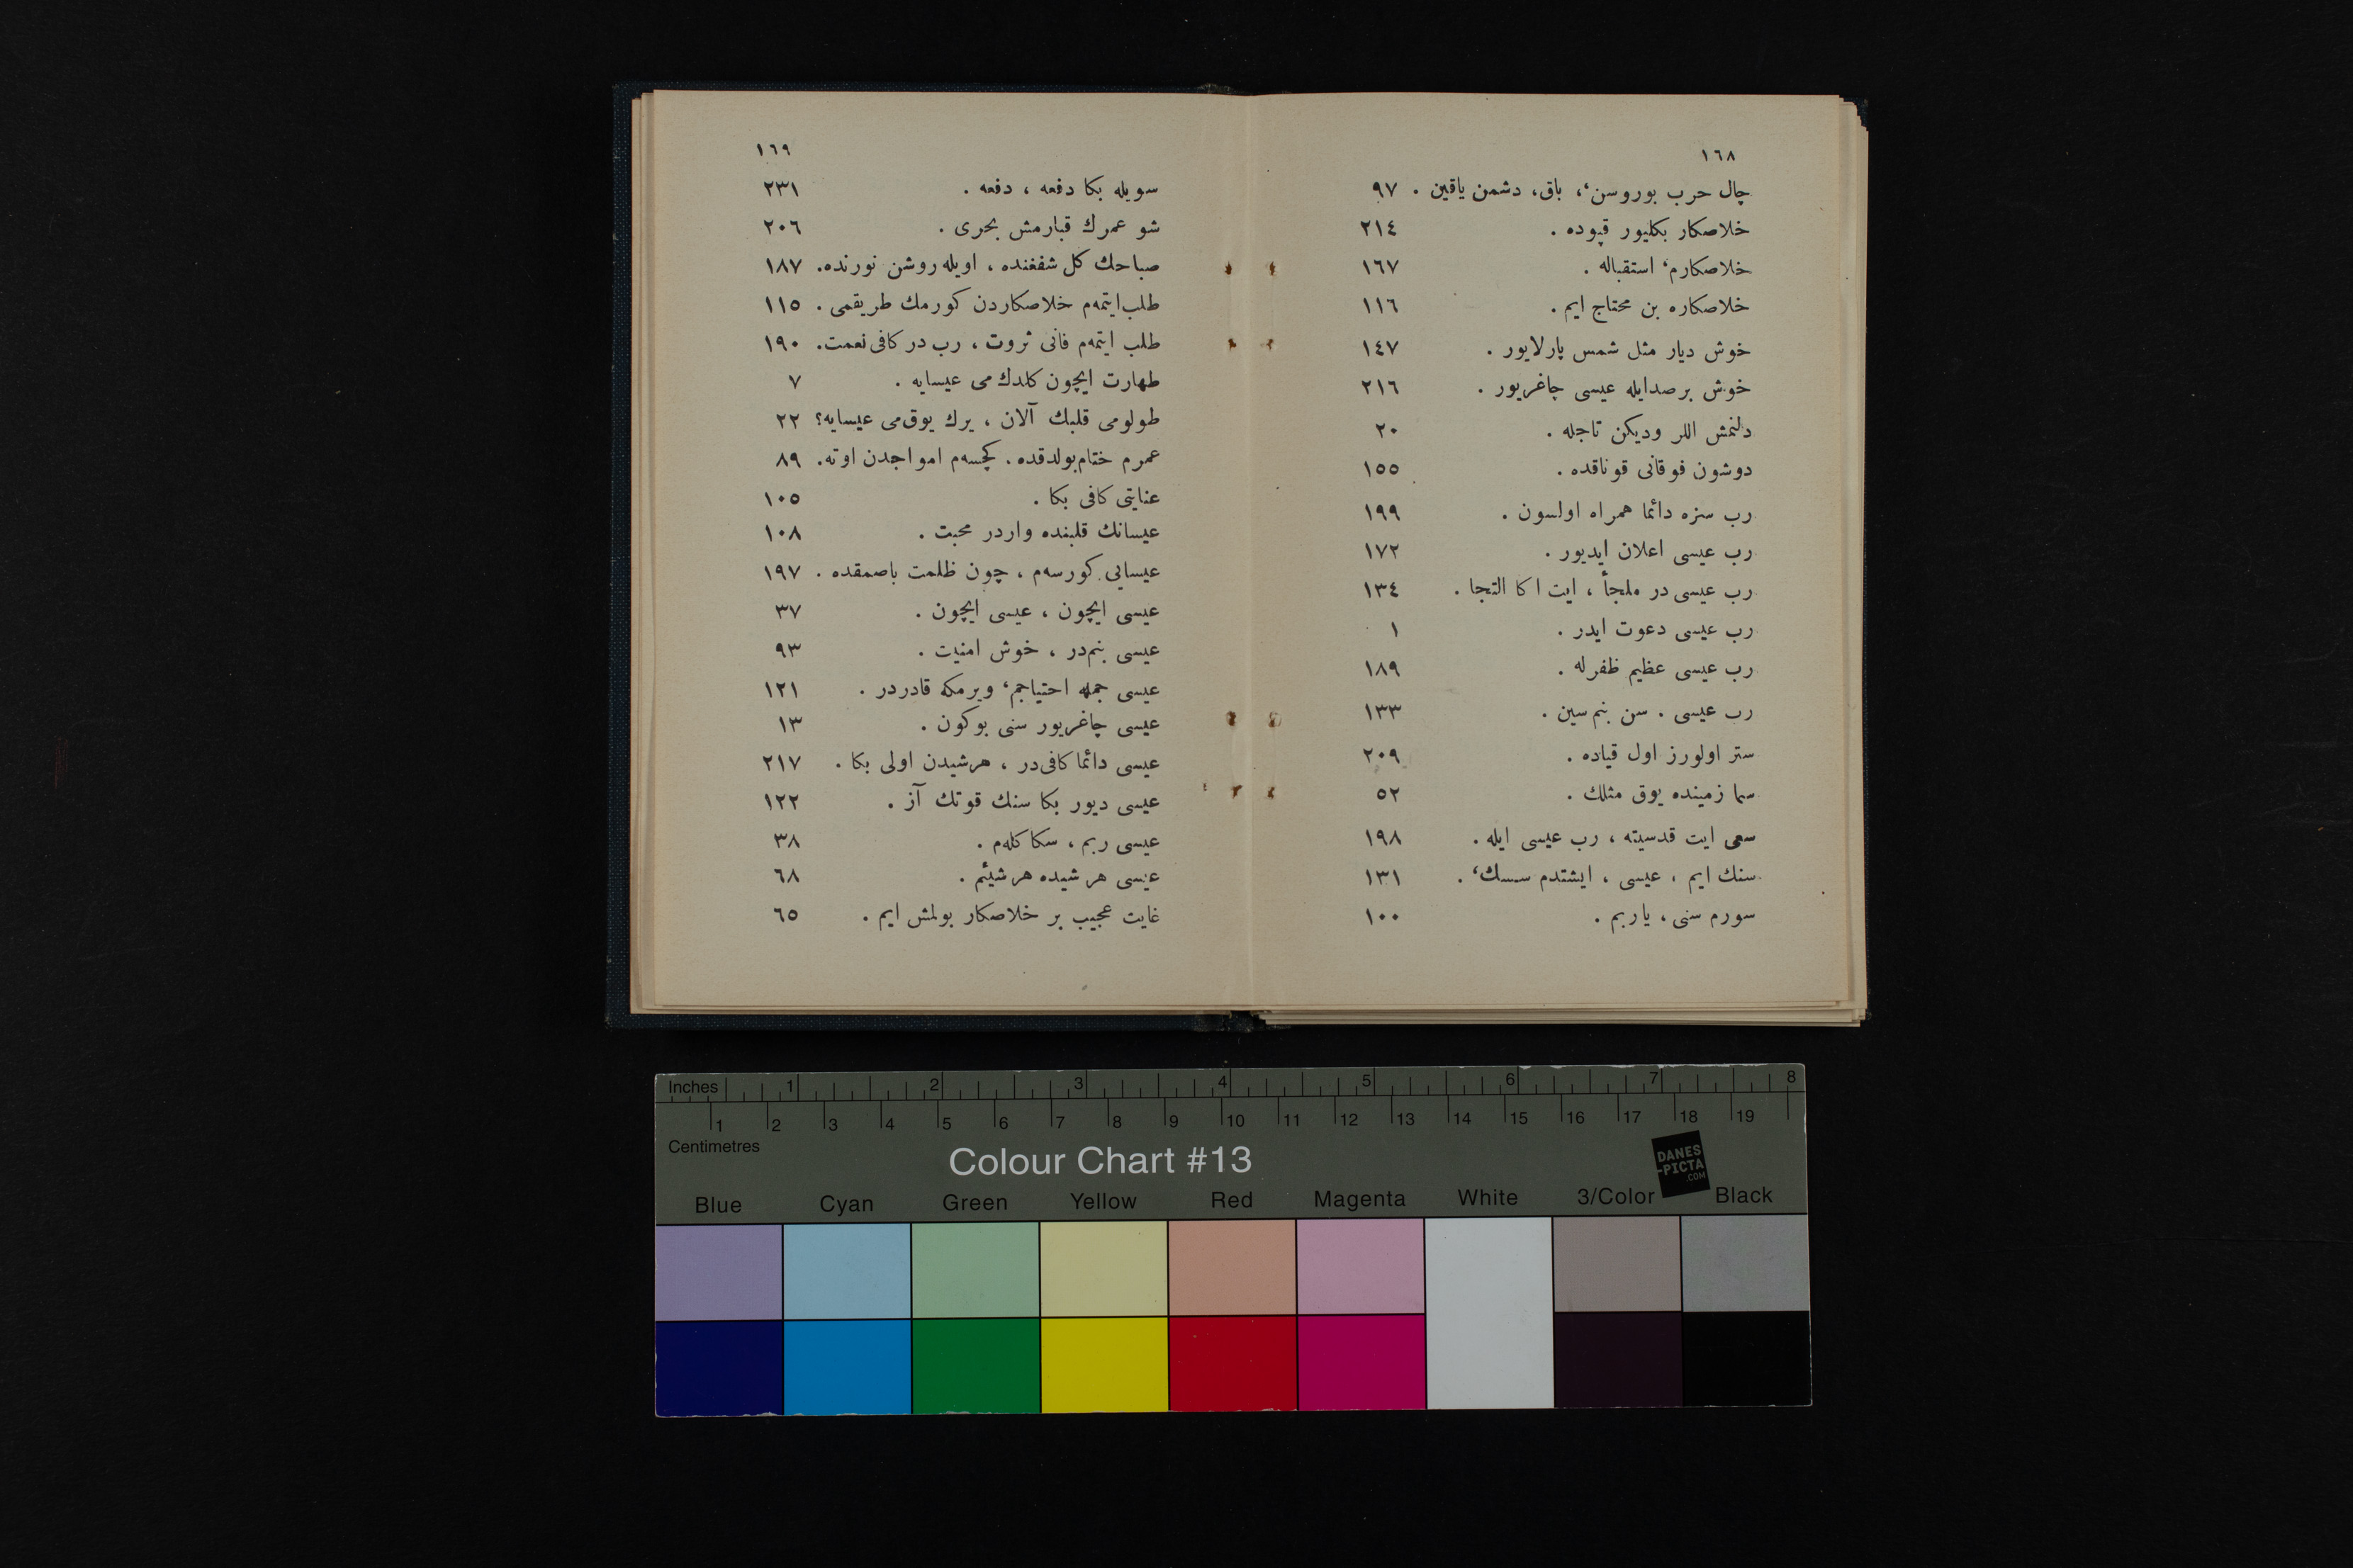 ١٦٨
چال حرب بوروسن،، باق، دشمن ياقين . ٩٧
خلاصكار بكليور قپوده . ٢١٤
خلاصكارم، استقباله . ١٦٧
خلاصكاره بن محتاج ايم . ١١٦
خوش ديار مثل شمس پارلايور . ١٤٧
خوش بر صدايله عيسى چاغريور . ٢١٦
دلنمش اللر وديكن تاجله . ٢٠
دوشون فوقانى قوناقده . ١٥٥
رب سزه دائما همراه اولسون . ١٩٩
رب عيسى اعلان ايديور . ١٧٢
رب عيسى در ملجأ ، ايت اكا التجا . ١٣٤
رب عيسى دعوت ايدر . ١
رب عيسى عظيم ظفرله . ١٨٩
رب عيسى . سن بنم سين . ١٣٣
ستر اولورز اول قياده . ٢٠٩
سما زمينده يوق مثلك . ٥٢
سعى ايت قدسيته ، رب عيسى ايله . ١٩٨
سنك ايم ، عيسى ، ايشتدم سسك، . ١٣١
سورم سنى ، ياربم . ١٠٠
١٦٩
سويله بكا دفعه ، دفعه . ٢٣١
شو عمرك قبارمش بحرى . ٢٠٦
صباحك كل شفغنده ، اويله روشن نورنده . ١٨٧
طلب ايتمه‌م خلاصكاردن كورمك طريقمى . ١١٥
طلب ايتمه‌م فانى ثروت ، رب در كافى نعمت . ١٩٠
طهارت ايچون كلدك مى عيسايه . ٧
طولومى قلبك آلان ، يرك يوق‌مى عيسايه؟ ٢٢
عمرم ختام بولدقده . كچسه‌م امواجدن اوته . ٨٩
عنايتى كافى بكا . ١٠٥
عيسانك قلبنده واردر محبت . ١٠٨
عيسايى كورسه‌م ، چون ظلمت باصمقده . ١٩٧
عيسى ايچون ، عيسى ايچون . ٣٧
عيسى بنم‌در ، خوش امنيت . ٩٣
عيسى جمله احتياجم، ويرمكه قادردر . ١٢١
عيسى چاغريور سنى بوكون . ١٣
عيسى دائما كافى‌در ، هرشيدن اولى بكا . ٢١٧
عيسى ديور بكا سنك قوتك آز . ١٢٢
عيسى ربم ، سكا كله‌م . ٣٨
عيسى هر شيده هر شيئم . ٦٨
غايت عجيب بر خلاصكار بولمش ايم . ٦٥
Inches 1 2 3 4 5 6 7 8
1 2 3 4 5 6 7 8 9 10 11 12 13 14 15 16 17 18 19
Centimetres
Colour Chart #13
DANES
-PICTA
.COM
Blue Cyan Green Yellow Red Magenta White 3/Color Black